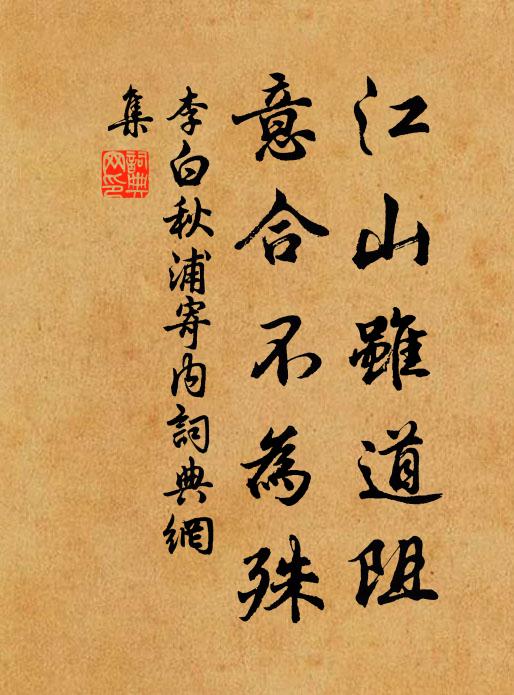 江山雖道阻
意合不為殊
李白秋浦寄内詞典網
集
詞典
网印